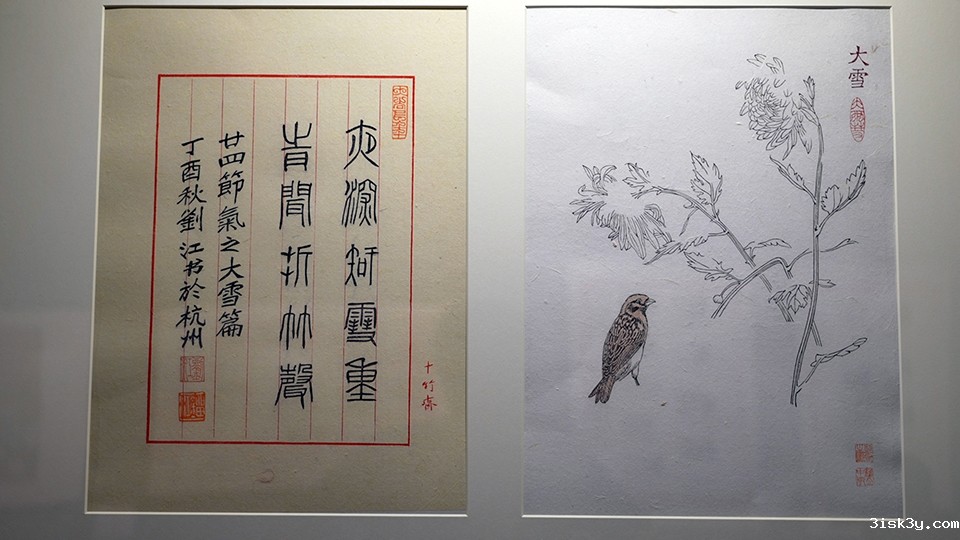 夜深知雪重
时闻折竹聲
廿四節氣之大雪篇
丁酉秋劉江书於杭州
十竹齋
大雪
3isk3y.com